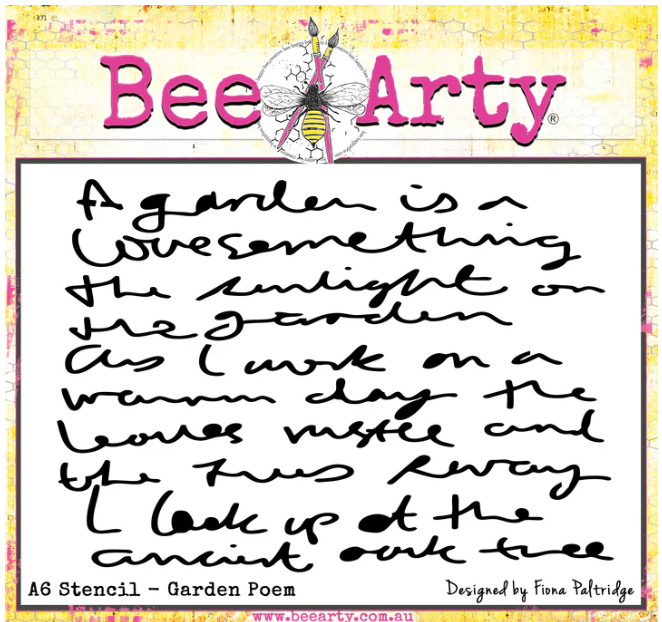 Bee Arty®
A garden is a
lovesomething
the sunlight on
the garden
As I work on a
warm day the
leaves rustle and
the trees sway
I look up at the
ancient oak tree
A6 Stencil - Garden Poem
Designed by Fiona Paltridge
www.beearty.com.au